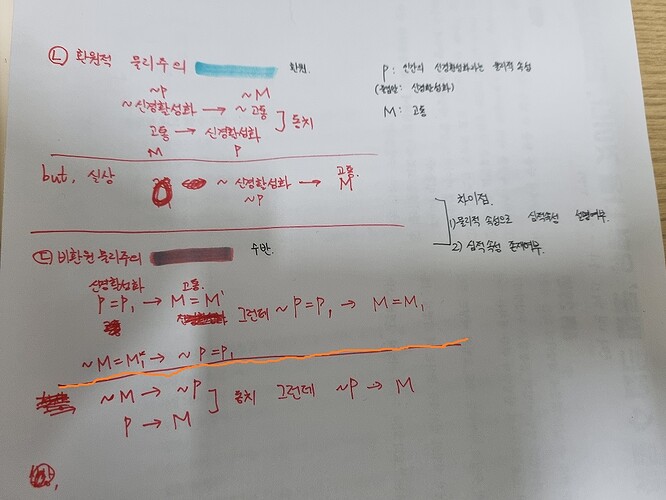 ㉡ 환원적 물리주의 환원.
~P ~M
~신경활성화 → ~고통
고통 → 신경활성화 ] 동치
M P
P : 인간의 신경활성화라는 물리적 속성
신경활성화)
M : 고통
but, 실상 ~신경활성화 → 고통
~P M
차이점.
1) 물리적 속성으로 심적속성 설명여부
2) 심적속성 존재여부.
㉢ 비환원 물리주의 수반.
신경활성화 고통.
P=P₁ → M=M' 그런데 ~P=P₁ → M=M₁
~M=M₁* → ~P=P₁
~M → ~P
P → M ] 동치 그런데 ~P → M